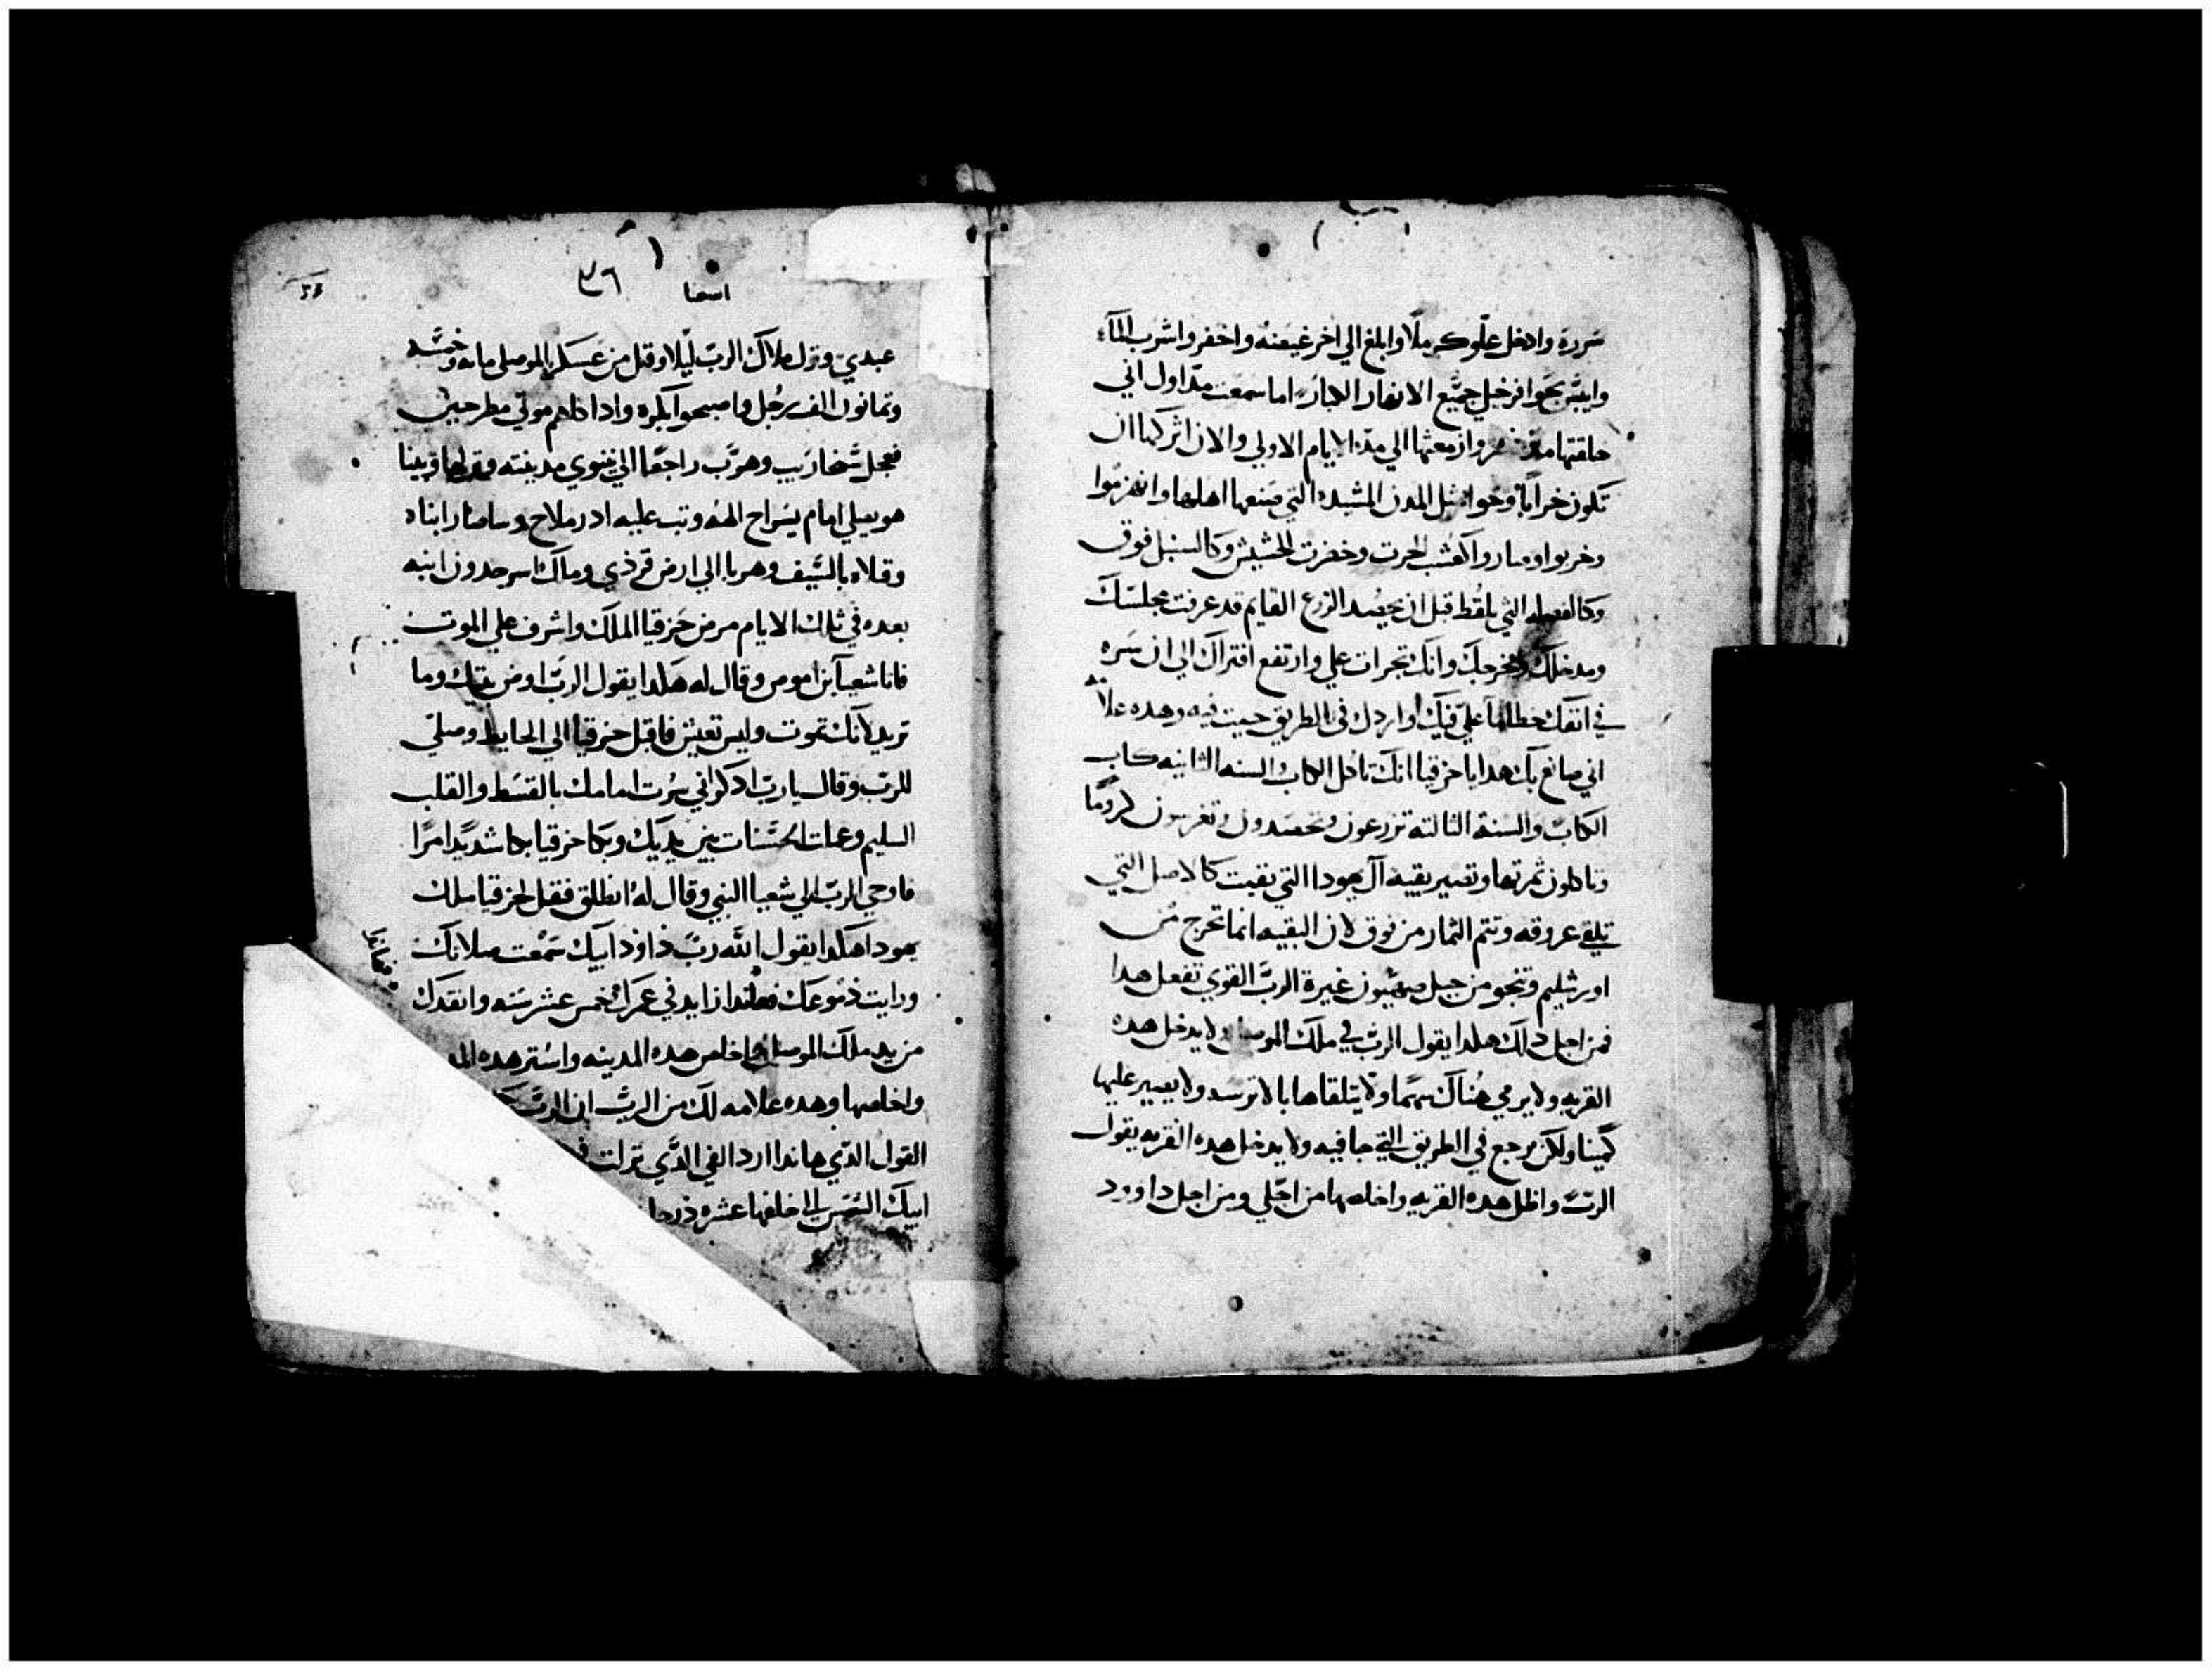 شررة وادخل علو كرملا وابلغ الي اخر غيضته واحفر واشرب المآء
وايبس بحوافر خيلي جميع الانهار اما سمعت مند اول اني
خلقتها وازمعتها الي مند الايام الاولي والان اثركها ان
تكون خرابا مثل المدن المشيده التي صنعها اهلها وانهزموا
وخربوا وصاروا كعشب الحرت وخضرت الحشيش وكالسنبل فوق
وكالقصله التي يلقط قبل ان يحصد الزرع القايم قد عرفت مجلسك
ومدخلك ومخرجك وانك تجرات علي وارتفع افتراك الي ان سره
في انفك خطاما علي فيك واردك في الطريق جيت فيه وهده علامه
اني صانع بك هدا يا حزقيا انك تاكل الكاب والسنه الثانيه كاب
الكاب والسنة الثالثة تزرعون وتحصدون وتغرسون كروما
وتاكلون ثمرتها وتصير بقيه آل يهودا التي بقيت كالاصل التي
تلقي عروقه وتتم الثمار من فوق لان البقيه انما تخرج من
اورشليم وتنجو من جبل صهيون غيرة الرب القوي تفعل هدا
فمن اجل دلك هكدا يقول الرب في ملك الموصل لا يدخل هده
القريه ولا يرمي هناك سهما ولا يتلقاها بالاترسه ولا يصير عليها
كمينا ولكن يرجع في الطريق التي جا فيه ولا يدخل هده القريه يقول
الرب واظل هده القريه واخلصها من اجلي ومن اجل داوود
اشعيا ٣٦
عبدي ونزل ملاك الرب ليلا وقتل من عسكر الموصلي مايه وخمسه
وثمانون الف رجل واصبحوا بكره وادا كلهم موتي مطرحين
فعجل سخاريب وهرب راجعا الي نينوي مدينته وبينا
هو يصلي امام يسراح الهه وتب عليه ادرملاح وساصار ابناه
وقتلاه بالسيف وهربا الي ارض قرذي وملك سرحدون ابنه
بعده في تلك الايام مرض حزقيا الملك واشرف علي الموت
فاتا شعيا بن اموص وقال له هكدا يقول الرب اوص بيتك وما
تريد لانك تموت وليس تعيش فاقبل حزقيا الي الحايط وصلي
للرب وقال يا رب ادكر اني سرت امامك بالقسط والقلب
السليم وعملت الحسنات بين يديك وبكا حزقيا بكا شديدا مرا
فاوحي الرب الي شعيا النبي وقال له انطلق فقل لحزقيا ملك
يهودا هكدا يقول الله رب داود ابيك سمعت صلاتك
ورايت دموعك فهاندا زايد في عمرك خمس عشر سنه وانقدك
من يد ملك الموصل واخلص هده المدينه واستر هده
واخلصها وهده علامه لك من الرب ان الرب
القول الدي هاندا ارد الفي الدي نزلت
ابيك الشمس الي خلفها عشره درجا